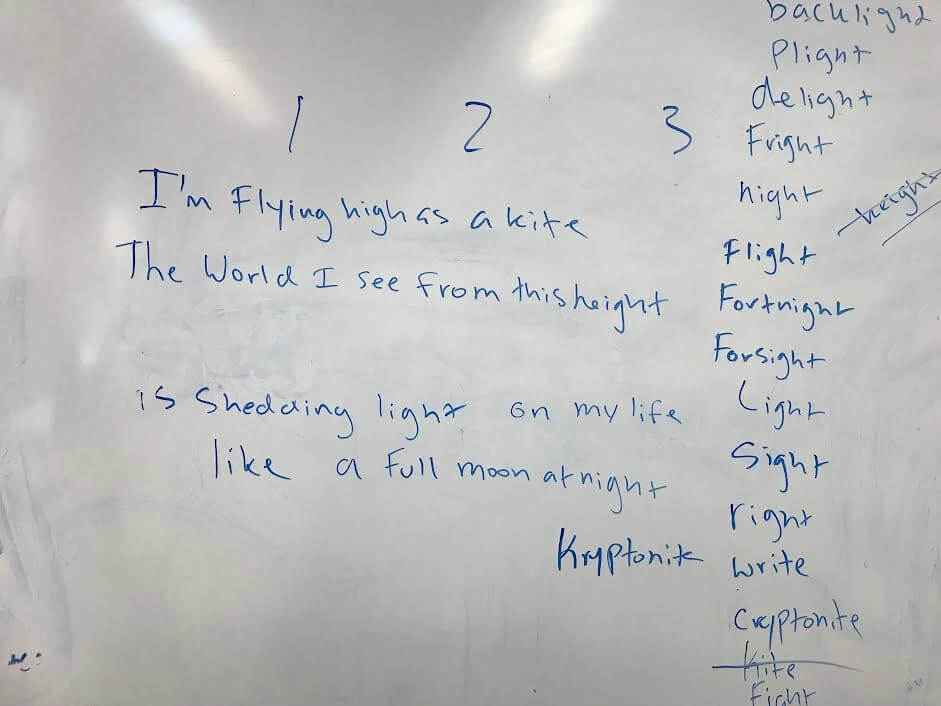 1 2 3
I'm Flying high as a kite
The World I see from this height
is Shedding light on my life
like a full moon at night
Kryptonite
backlight
Plight
delight
Fright
night
height
Flight
Fortnight
Forsight
Light
Sight
right
write
Cryptonite
Kite
Fight